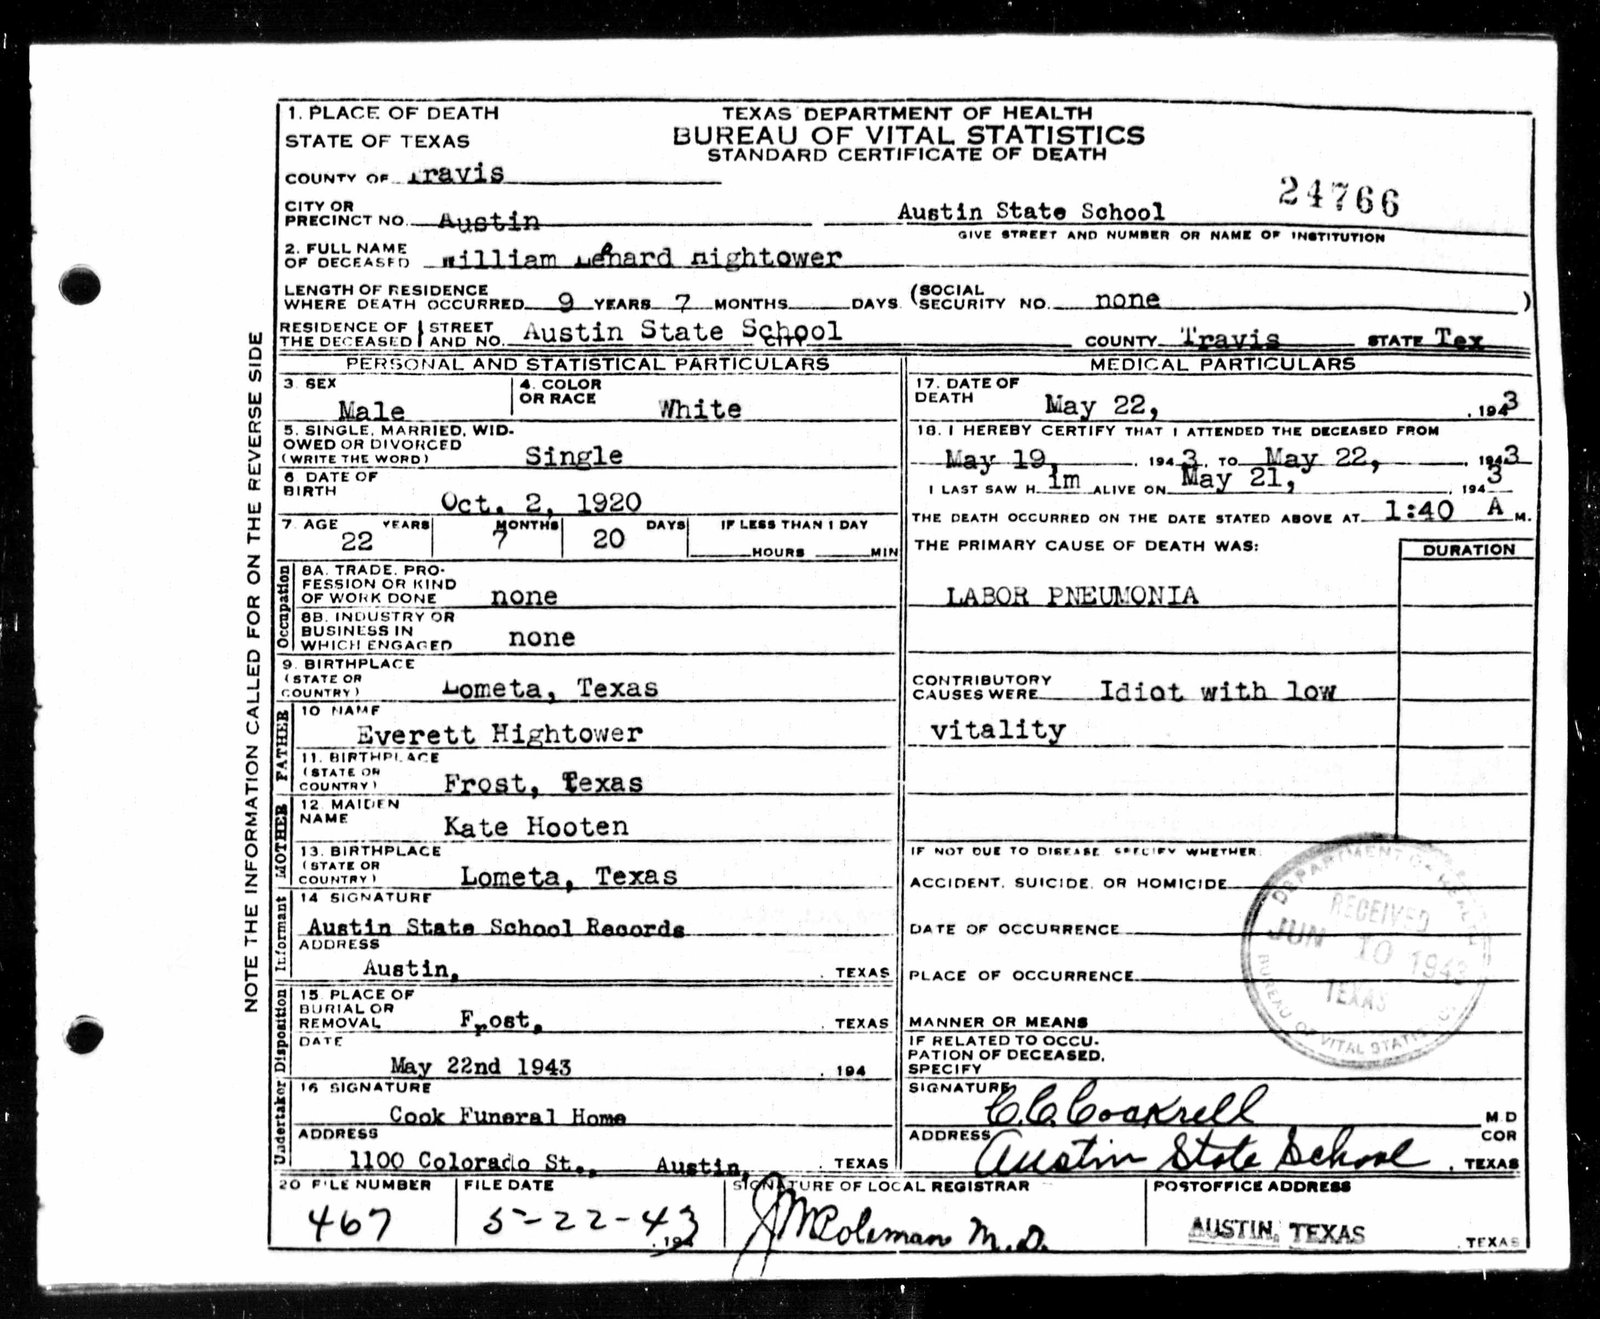 1. PLACE OF DEATH
STATE OF TEXAS
TEXAS DEPARTMENT OF HEALTH
BUREAU OF VITAL STATISTICS
STANDARD CERTIFICATE OF DEATH
COUNTY OF Travis
24766
CITY OR
PRECINCT NO. Austin
Austin State School
GIVE STREET AND NUMBER OR NAME OF INSTITUTION
2. FULL NAME
OF DECEASED William Lehard Hightower
LENGTH OF RESIDENCE
WHERE DEATH OCCURRED 9 YEARS 7 MONTHS DAYS (SOCIAL SECURITY NO. none )
RESIDENCE OF THE DECEASED STREET AND NO. Austin State School CITY COUNTY Travis STATE Tex
PERSONAL AND STATISTICAL PARTICULARS
3. SEX Male
4. COLOR OR RACE White
5. SINGLE, MARRIED, WID-
OWED OR DIVORCED
(WRITE THE WORD) Single
6 DATE OF
BIRTH Oct. 2, 1920
7. AGE YEARS MONTHS DAYS IF LESS THAN 1 DAY
22 7 20 HOURS MIN
Occupation
8A. TRADE, PRO-
FESSION OR KIND
OF WORK DONE none
8B. INDUSTRY OR
BUSINESS IN
WHICH ENGAGED none
9. BIRTHPLACE
(STATE OR
COUNTRY) Lometa, Texas
FATHER
10 NAME
Everett Hightower
11. BIRTHPLACE
(STATE OR
COUNTRY) Frost, Texas
MOTHER
12. MAIDEN
NAME Kate Hooten
13. BIRTHPLACE
(STATE OR
COUNTRY) Lometa, Texas
Informant
14 SIGNATURE
Austin State School Records
ADDRESS
Austin, . TEXAS
Undertaker Disposition
15. PLACE OF
BURIAL OR
REMOVAL Frost, . TEXAS
DATE
May 22nd 1943 . 194
16 SIGNATURE
Cook Funeral Home
ADDRESS
1100 Colorado St., Austin, . TEXAS
MEDICAL PARTICULARS
17. DATE OF
DEATH May 22, , 1943
18. I HEREBY CERTIFY THAT I ATTENDED THE DECEASED FROM
May 19, , 1943, TO May 22, , 1943
I LAST SAW H im ALIVE ON May 21, , 1943
THE DEATH OCCURRED ON THE DATE STATED ABOVE AT 1:40 A M.
THE PRIMARY CAUSE OF DEATH WAS: DURATION
LABOR PNEUMONIA
CONTRIBUTORY
CAUSES WERE Idiot with low
vitality
IF NOT DUE TO DISEASE SPECIFY WHETHER:
ACCIDENT, SUICIDE, OR HOMICIDE
DATE OF OCCURRENCE
PLACE OF OCCURRENCE
MANNER OR MEANS
IF RELATED TO OCCU-
PATION OF DECEASED,
SPECIFY
DEPARTMENT OF HEALTH
RECEIVED
JUN 10 1943
TEXAS
BUREAU OF VITAL STATISTICS
SIGNATURE C.C. Cockrell M D
COR
ADDRESS Austin State School . TEXAS
20 FILE NUMBER
467
FILE DATE
5-22-43 . 194
SIGNATURE OF LOCAL REGISTRAR
J M Coleman M.D.
POSTOFFICE ADDRESS
AUSTIN, TEXAS . TEXAS
NOTE THE INFORMATION CALLED FOR ON THE REVERSE SIDE